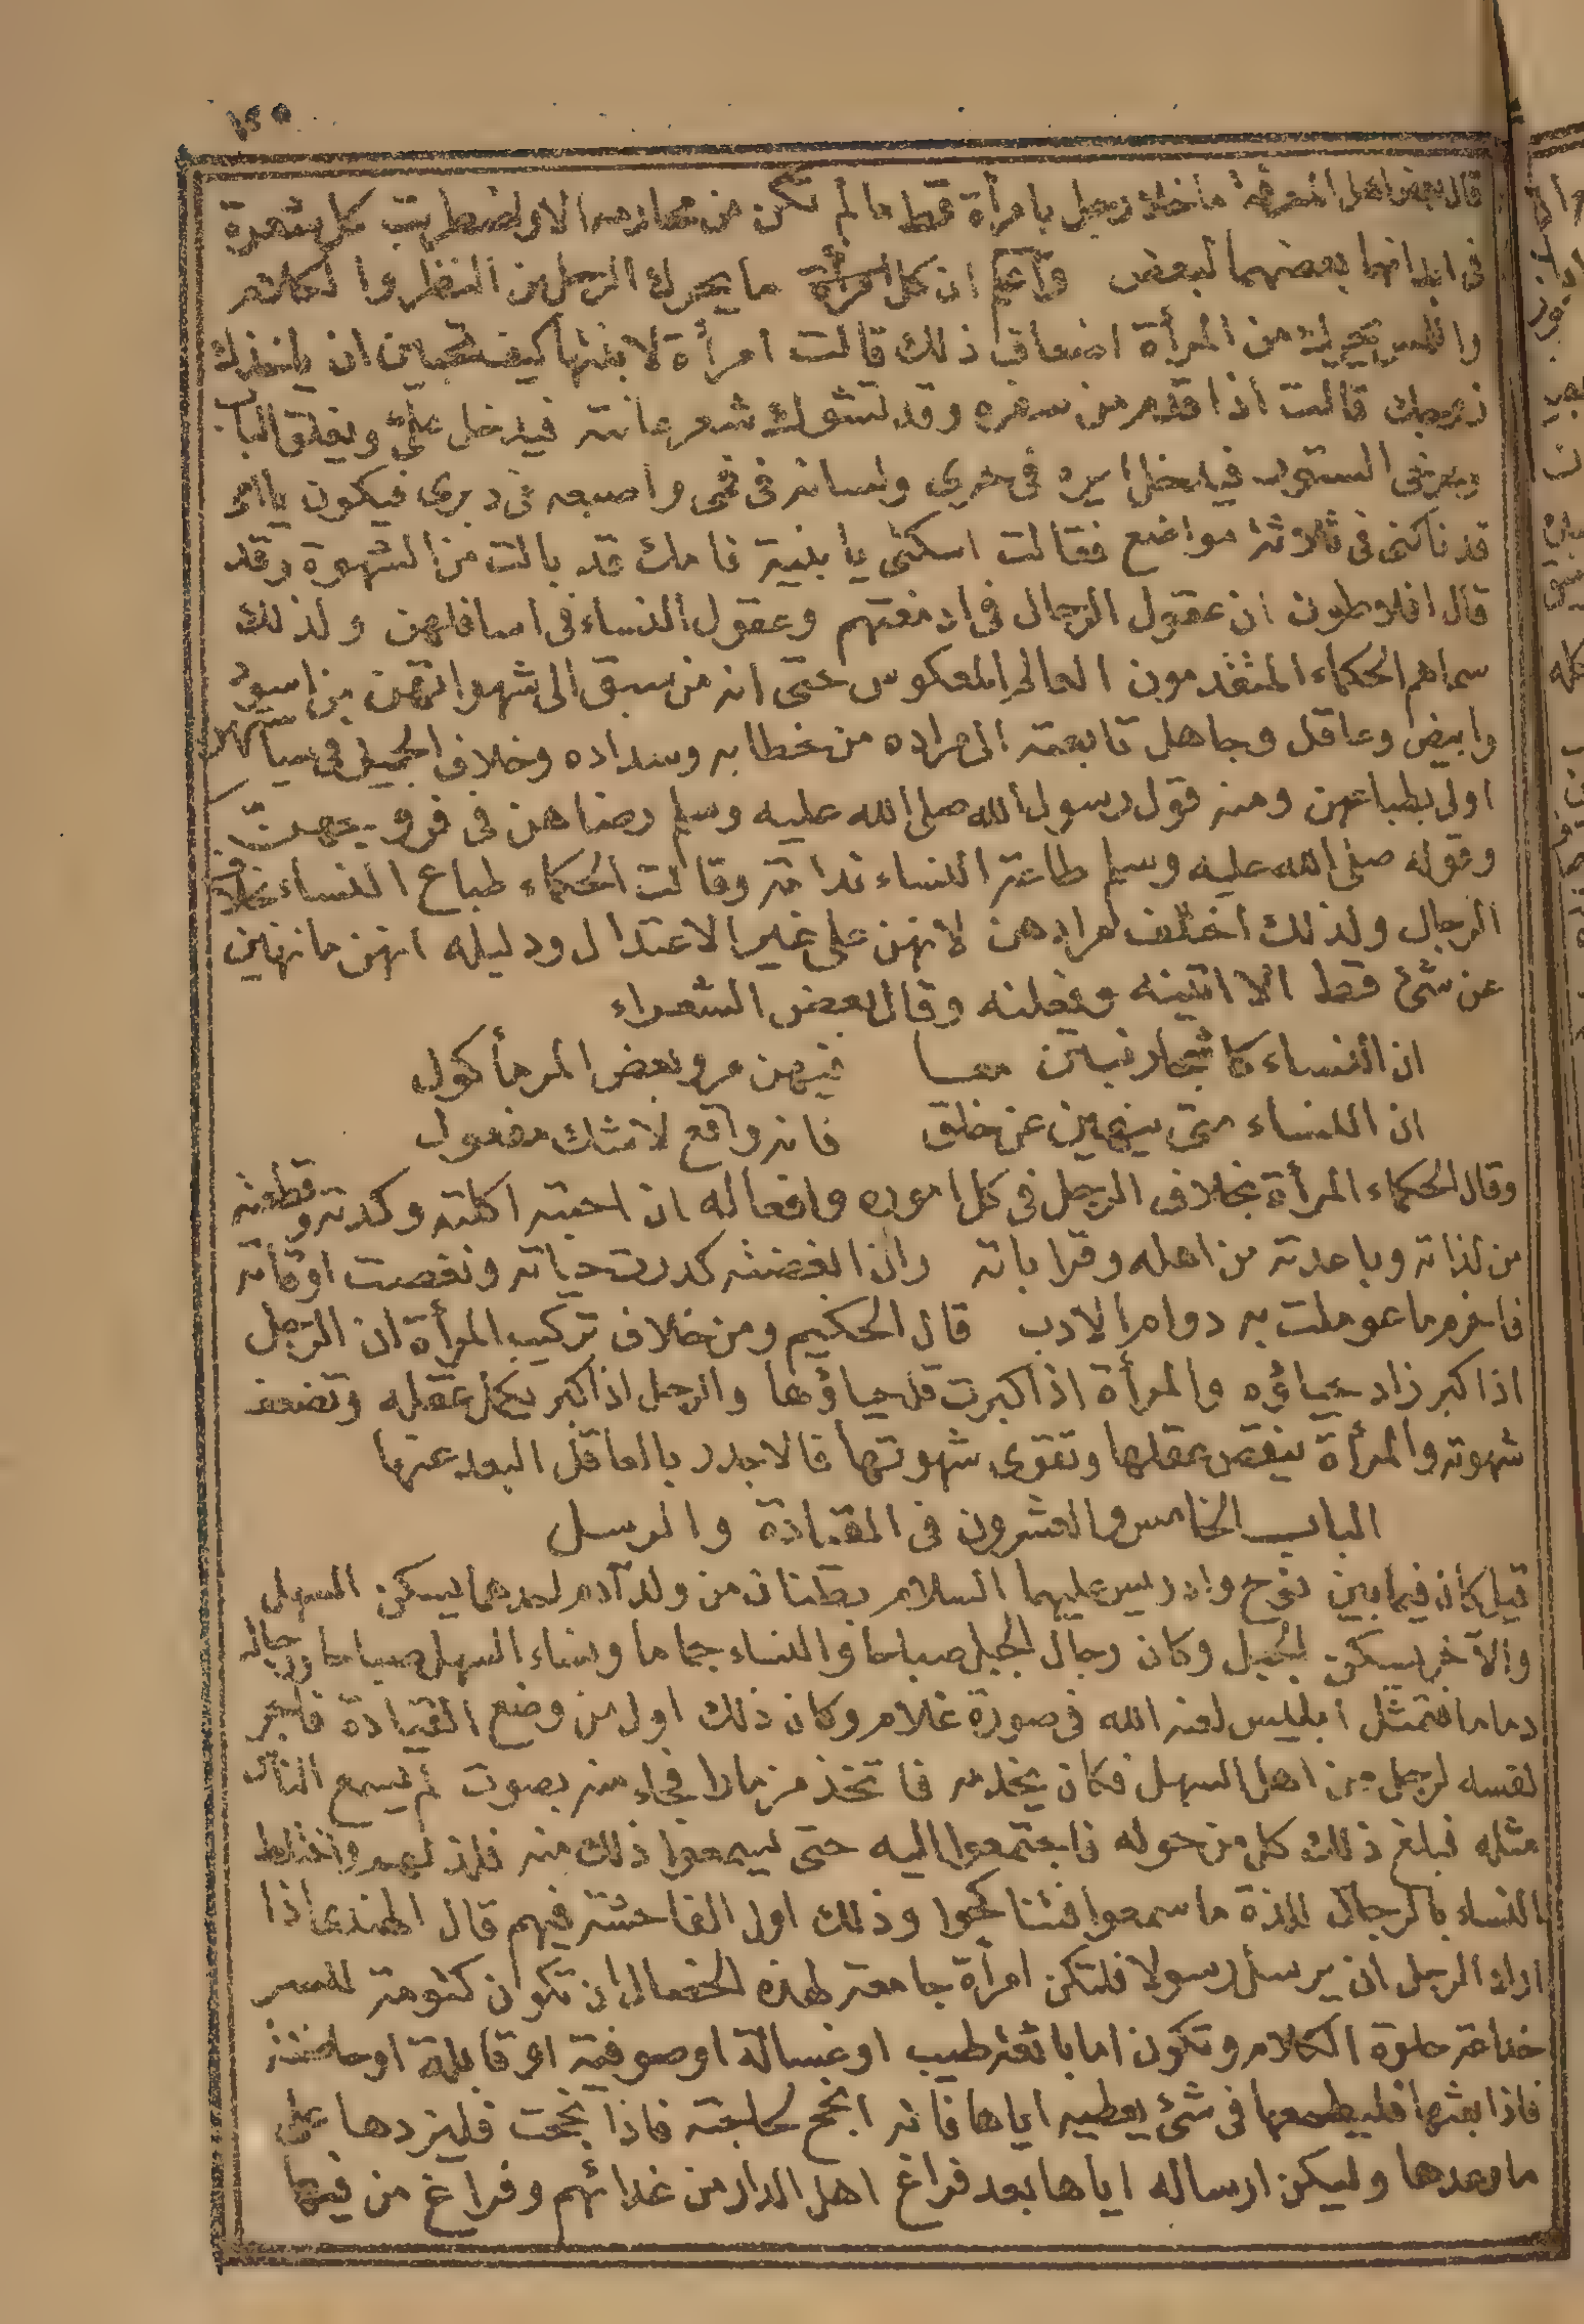 ١٢٥
قال بعض اهل المعرفة ما خلا رجل بامرأة قط ما لم تكن من محارمه الا واضطربت كل شعرة
فى ابدانهما بعضهما لبعض واعلم ان كل امرأة ما يحرك الرجل من النظر والكلام
واللمس يحرك من المرأة اضعاف ذلك قالت امرأة لابنتها كيف تحبين ان ياخذك
زوجك قالت اذا قدم من سفره وقد تشوك شعر عانته فيدخل علىّ ويغلق الباب
ويرخى الستور فيدخل ايره فى حرى ولسانه فى فمى واصبعه فى دبرى فيكون يا امى
قد ناكنى فى ثلاثة مواضع فقالت اسكتى يا بنية فامك قد بالت من الشهوة وقد
قال افلاطون ان عقول الرجال فى ادمغتهم وعقول النساء فى اسافلهن ولذلك
سماهم الحكماء المتقدمون العالم المعكوس حتى انه من سبق الى شهواتهن من اسود
وابيض وعاقل وجاهل تابعته الى مراده من خطابه وسداده وخلاف الجميل فى سياستهن
اولى بطباعهن ومنه قول رسول الله صلى الله عليه وسلم رضاهن فى فروجهنّ
وقوله صلى الله عليه وسلم طاعة النساء ندامة وقالت الحكماء طباع النساء خلاف
الرجال ولذلك اختلف مرادهن لانهن على غير الاعتدال ودليله انهن ما نهين
عن شئ قط الا اتينه وفعلنه وقال بعض الشعراء
ان النساء كاشجار نبتن معا فيهن مر وبعض المر مأكول
ان النساء متى ينهين عن خلق فانه واقع لا شك مفعول
وقال الحكماء المرأة بخلاف الرجل فى كل اموره وافعاله ان احبته اكلته وكدته وقطعته
من لذاته وباعدته من اهله وقراباته وان ابغضته كدرت حياته ونغصت اوقاته
فاحزم ما عوملت به دوام الادب قال الحكيم ومن خلاف تركيب المرأة ان الرجل
اذا كبر زاد حياؤه والمرأة اذا كبرت قل حياؤها والرجل اذا كبر يكمل عقله وتضعف
شهوته والمرأة ينقص عقلها وتقوى شهوتها فالاجدر بالعاقل البعد عنها
الباب الخامس والعشرون فى القيادة والرسل
قيل كان فيما بين نوح وادريس عليهما السلام بطنان من ولد آدم احدهما يسكن السهل
والآخر يسكن الجبل وكان رجال الجبل صباحا والنساء دماما ونساء السهل صباحا ورجاله
دماما فتمثل ابليس لعنه الله فى صورة غلام وكان ذلك اول من وضع القيادة فاجر
نفسه لرجل من اهل السهل فكان يخدمه فاتخذ مزمارا فجاء منه بصوت لم يسمع الناس
مثله فبلغ ذلك كل من حوله فاجتمعوا اليه حتى يسمعوا ذلك منه فلذ لهم واختلط
النساء بالرجال للذة ما سمعوا فتناكحوا وذلك اول الفاحشة فيهم قال الهندى اذا
اراد الرجل ان يرسل رسولا فلتكن امرأة جامعة لهذه الخصال ان تكون كتومة للسر
خداعة حلوة الكلام وتكون اما بائعة طيب او غسالة او صوفية او قابلة او حاضنة
فاذا بعثها فليطمعها فى شئ يعطيه اياها فانه انجح لحاجته فاذا نجحت فليزدها على
ما وعدها وليكن ارساله اياها بعد فراغ اهل الدار من غدائهم وفراغ من فيها